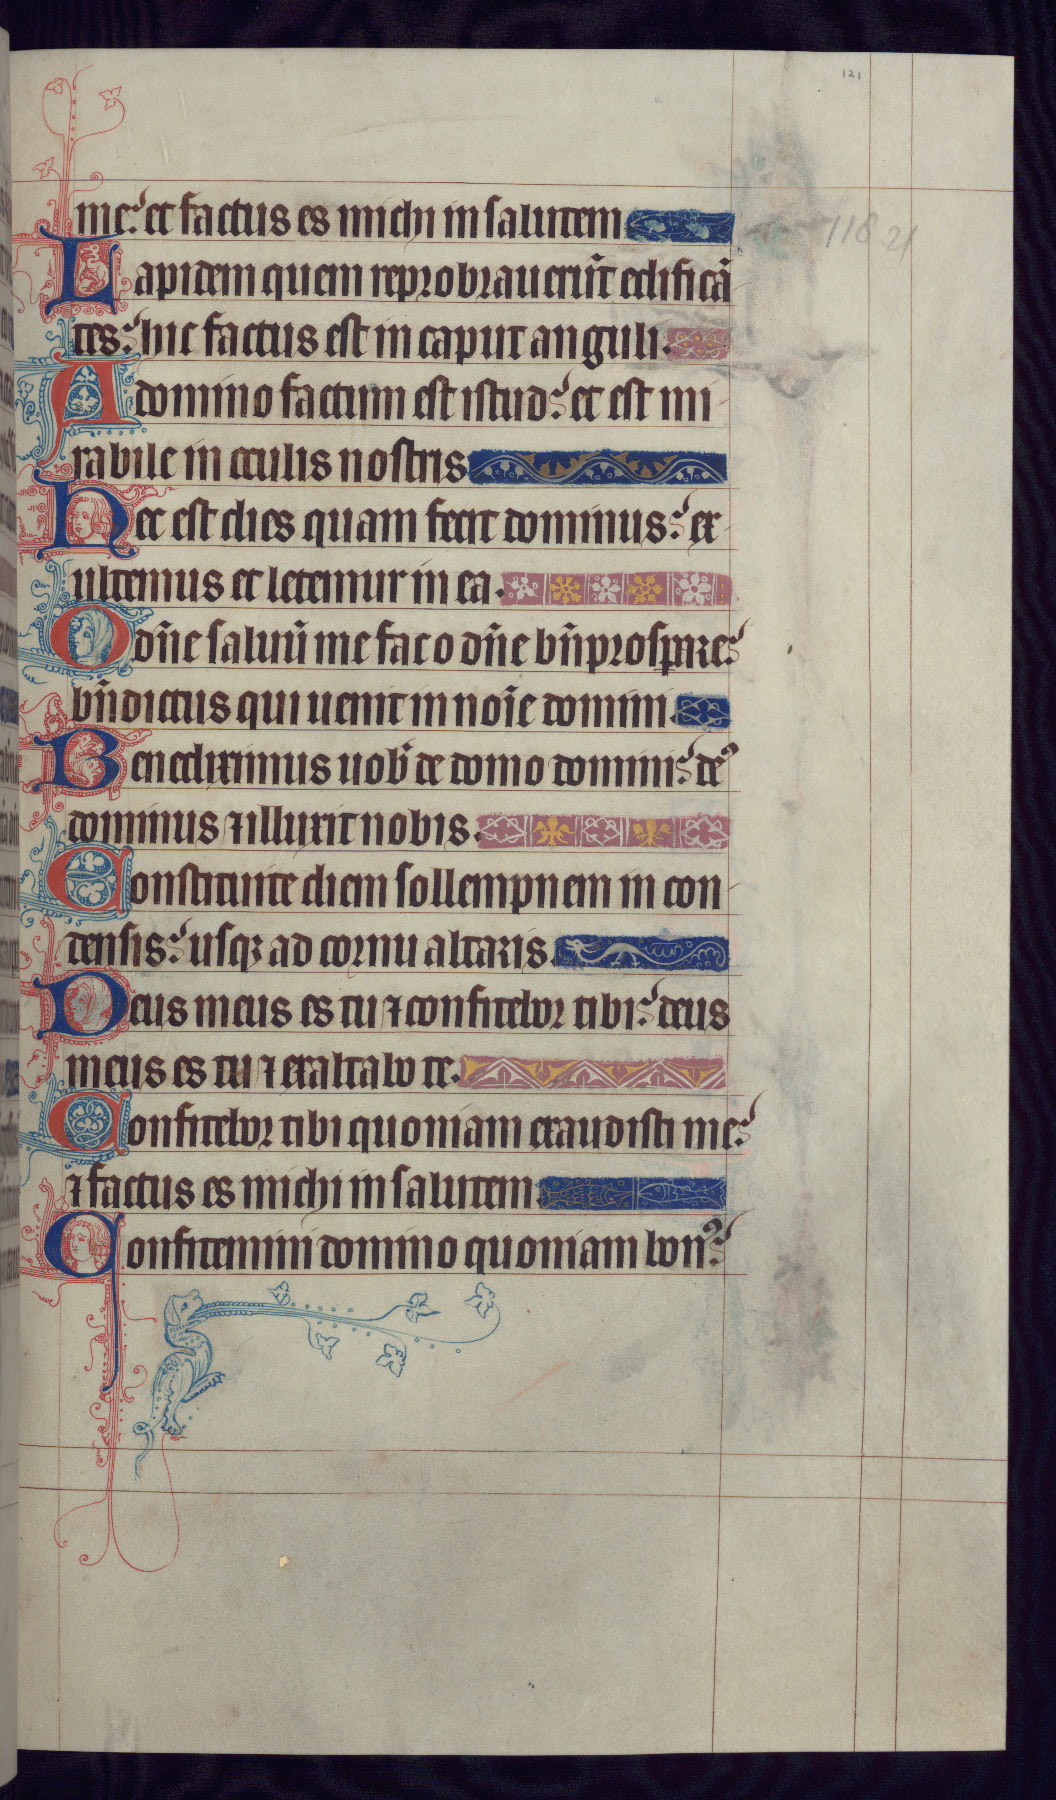 121
me: et factus es michi in salutem
118 21
Lapidem quem reprobrauerūt edificā
tes: hic factus est in caput anguli.
A domino factum est istud: et est mi
rabile in oculis nostris
Hec est dies quam fecit dominus: ex
ultemus et letemur in ea.
O dn̄e saluū me fac o dn̄e bn̄ prosꝑare:
bn̄dictus qui uenit in noīe domini.
Benediximus uob̄ de domo domini: deꝰ
dominus ⁊ illuxit nobis.
Constituite diem sollempnem in con
densis: usqꝫ ad cornu altaris.
Deus meus es tu ⁊ confitebor tibi: deus
meus es tu ⁊ exaltabo te.
Confitebor tibi quoniam exaudisti me:
⁊ factus es michi in salutem.
Confitemini domino quoniam bonꝰ: